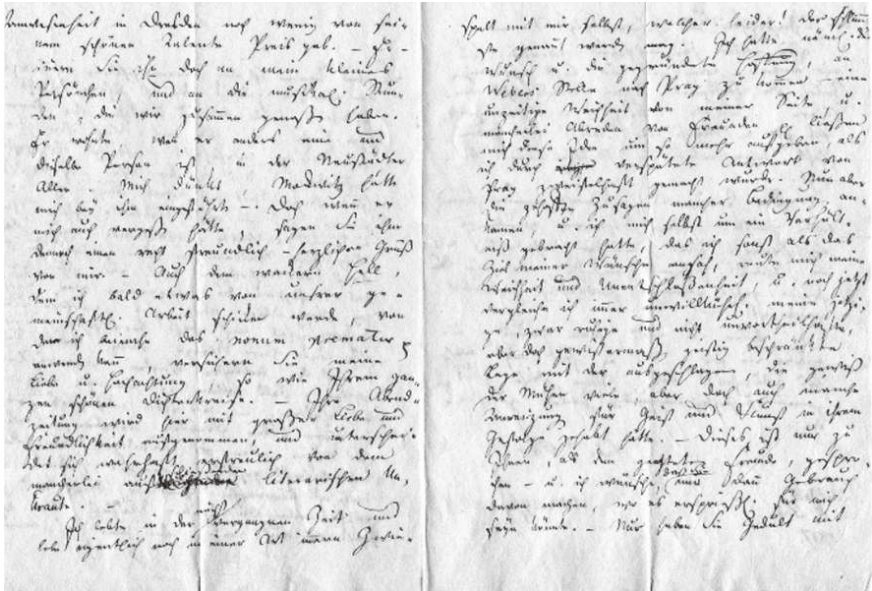 Anwesenheit in Dresden noch wenig von sei-
nem schönen Talente Preis gab. – Er-
innern Sie ihn doch an mein kleines
Persönchen und an die musikal. Stun-
den, die wir zusammen genossen haben.
Er wohnte, wenn er anders ein und
dieselbe Person ist in der Neustädter
Allee. Mich dünkt, Mosewitz hatte
mich bey ihm eingeführt –. Doch wenn er
mich auch vergessen hätte, sagen Sie ihm
dennoch einen recht freundlich-herzlichen Gruß
von mir. – Auch dem wackern Hell,
dem ich bald etwas von unsrer ge-
meinschaftl. Arbeit schicken werde, von
der ich beinahe das nonum prematur
anwenden kann, versichern Sie meine
Liebe u. Hochachtung so wie Ihrem gan-
zen schönen Dichterkreise. – Ihre Abend-
zeitung wird hier mit großer Liebe und
Freundlichkeit aufgenommen, und unterschei-
det sich wahrhaft erfreulich von dem
mancherlei literarischen Un-
kraute.
Ich lebte in der vergangnen Zeit und
lebe eigentlich noch in einer Art innern Zwie-
spalt mit mir selbst, welcher leider! der schlimm-
ste genannt werden mag. Ich hatte näml. den
Wunsch u. die gegründete Hoffnung, an
Webers Stelle nach Prag zu kommen – eine
unzeitige Weichheit von meiner Seite u.
mancherlei Abreden von Freunden ließen
mich diese Idee um so mehr aufgeben, als
ich durch verspätete Antwort von
Prag zweifelhaft gemacht wurde. Nun aber
die Zusagen mancher Bedingung an-
kamen, u. ich mich selbst um ein Verhält-
niß gebracht hatte, das ich sonst als das
Ziel meiner Wünsche ansah, reute mich meine
Weichheit und Unentschlossenheit, u. noch jetzt
vergleiche ich immer unwillkührl. meine jetzi-
ge, zwar ruhige und nicht unvortheilhafte,
aber doch gewissermaß. geistig beschränkte
Lage mit der ausgeschlagenen, die gewiß
der Mühen viele, aber doch auch manche
Anreizung für Geist und Kunst in ihrem
Gefolge gehabt hätte – Dieses ist nur zu
Ihnen, als dem Freunde, gespro-
chen – u. ich wünsche, Gebrauch
davon machen, wo es ersprießl. für mich
seyn könnte. – Nur haben Sie Geduld mit